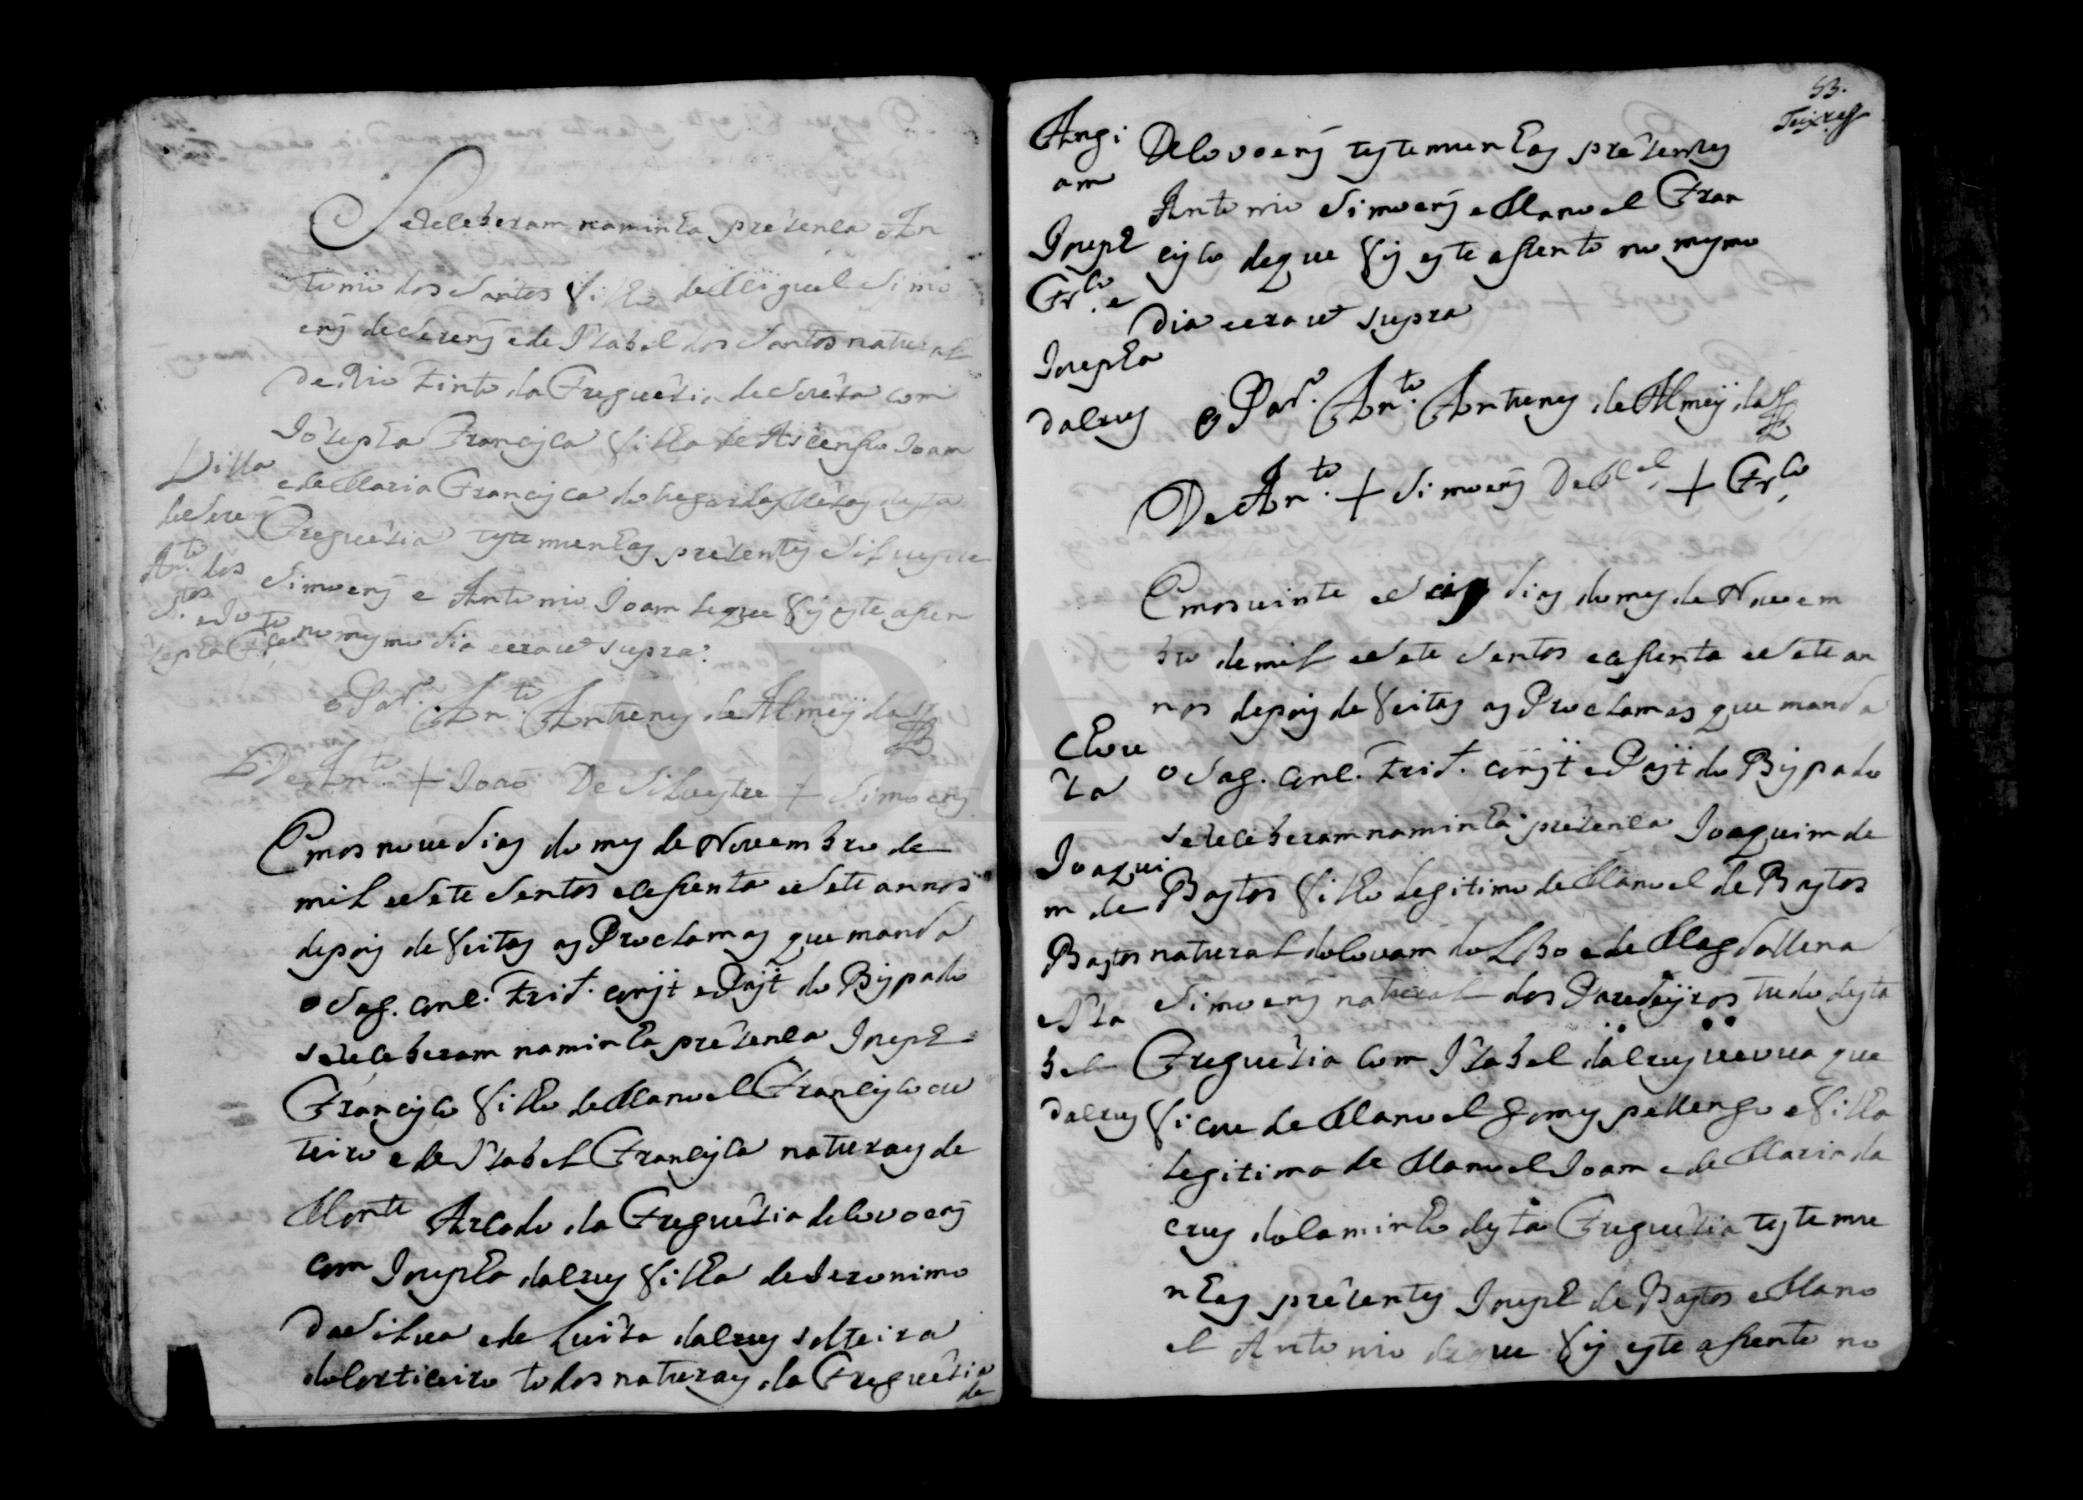 Se receberam na minha prezença An
tonio dos Santos filho de Miguel Simo
ens de Serem e de Izabel dos Santos natural
de Rio tinto da Freguezia de
com
Jozepha Francisca filha de Ascenso Joam
e de Maria Francisca do lugar das desta
Freguezia testemunhas prezentes Silvestre
Simoens e Antonio Joam de que fis este asen
to no mesmo dia e era ut supra.
o Par.º An.to Antunes de Almeyda
De An.to + Joao De Silvestre + Simoens
Villa
de Serem
An.to dos
S.tos e Jo
zepha Fr.ca
Em os nove dias do mes de Novembro de
mil e sete sentos e sesenta e sete annos
depois de feitas as Proclamas que manda
o Sag. Conc. Trid. const e Past do Bispado
se receberam na minha prezença Joseph
Francisco filho de Manoel Francisco ou
teiro e de Izabel Francisca naturaes de
Monte Arcado da Freguezia de Covoens
com Josepha da Crus filha de Jeronimo
da Silva e de Luiza da Crus solteira
do Corticeiro todos naturaes da Freguezia
de
53.
Teix.ra
Angi
am
Joseph
Fr.co e
Josepha
da Crus
de Covoens testemunhas prezentes
Antonio Simoens e Manoel Fran
cisco de que fis este asento no mesmo
dia e era ut supra
o Par.º An.to Antunes de Almeyda
De An.to + Simoens De M.el + Fr.co
Em os vinte e seis dias do mes de Novem
bro de mil e sete sentos e sesenta e sete an
nos depois de feitas as Proclamas que manda
o Sag. Conc. Trid. const e Past do Bispado
se receberam na minha prezença Joaquim de
Bastos filho legitimo de Manoel de Bastos
natural do Covam do Lobo e de Magdallena
Simoens natural dos Paredeiros tudo desta
Freguezia com Izabel da Crus veuva que
ficou de Manoel Gomes pellengo e filha
legitima de Manoel Joam e de Maria da
Crus da Caminho desta Freguezia testemu
nhas prezentes Joseph de Bastos e Mano
el Antonio de que fis este asento no
Chou
za
Joaqui
m de
Bastos
e Iza
bel
da Crus